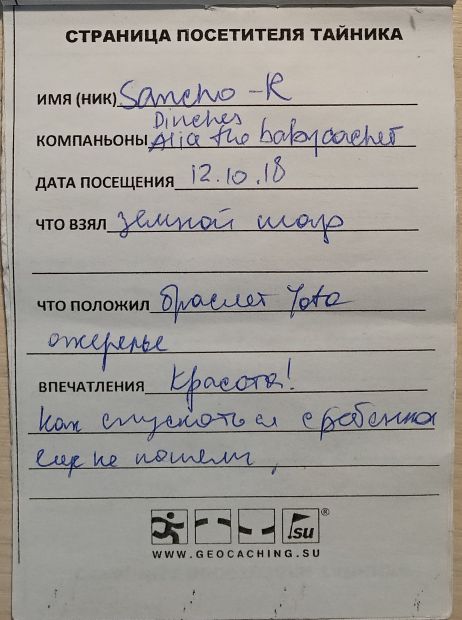 СТРАНИЦА ПОСЕТИТЕЛЯ ТАЙНИКА
ИМЯ (НИК) Sancho-R
Dinches
КОМПАНЬОНЫ Alia the babycacher
ДАТА ПОСЕЩЕНИЯ 12.10.18
ЧТО ВЗЯЛ земной шар
ЧТО ПОЛОЖИЛ браслет Yota
ожерелье
ВПЕЧАТЛЕНИЯ Красота!
Как спускаться с ребенком
еще не поняли,
.su ®
WWW.GEOCACHING.SU